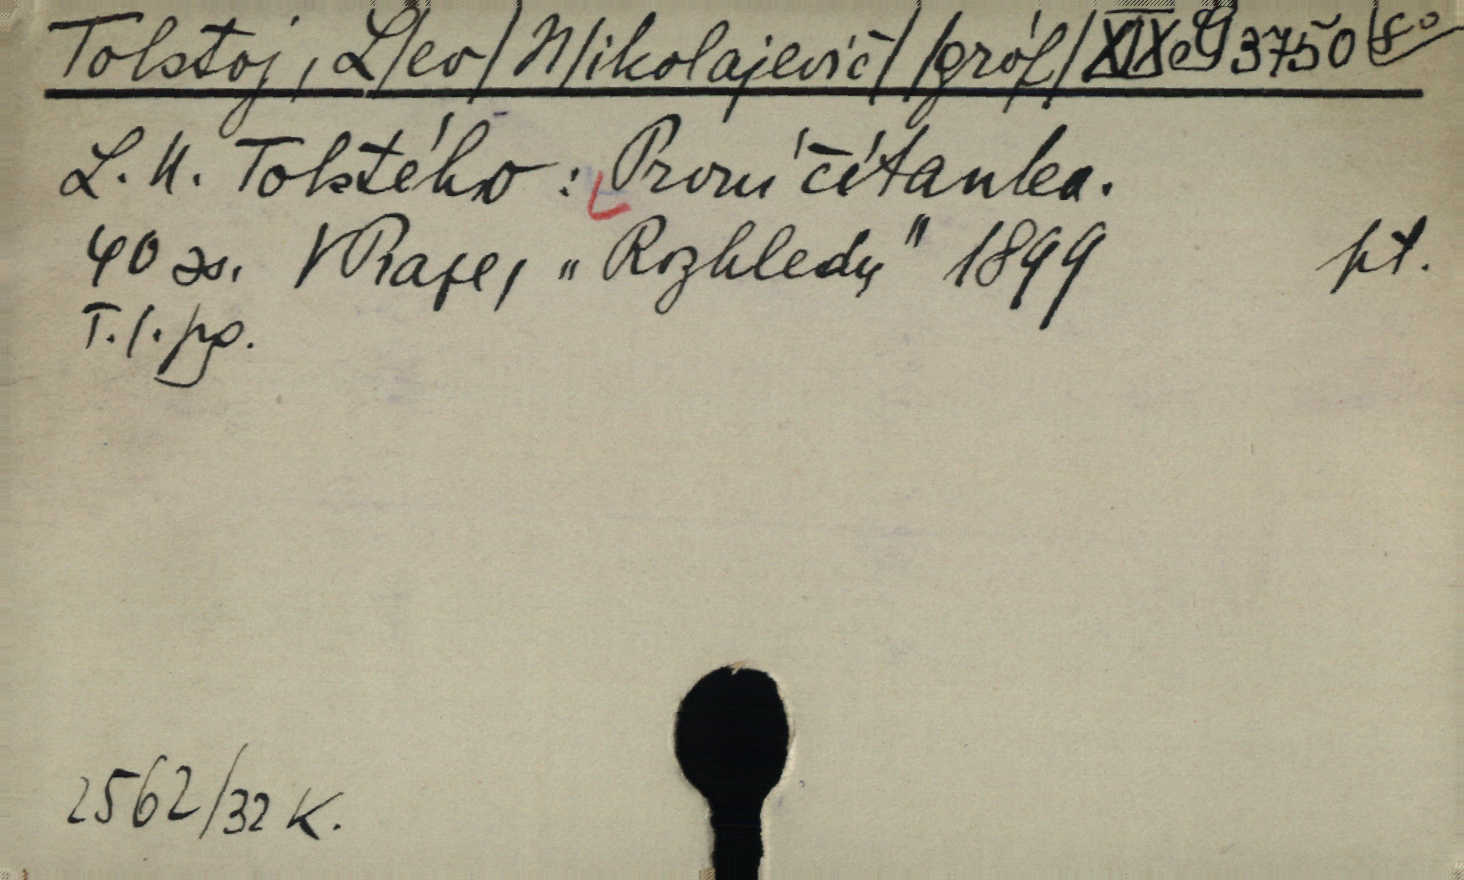 Tolstoj, L/ev/ N/ikolajevič/ /gróf/ XIX e 9 3750
L. N. Tolstého: První čítanka.
40 zs. V Praze, „Rozhledy" 1899 pt.
T. l. pg.
2562/32 K.